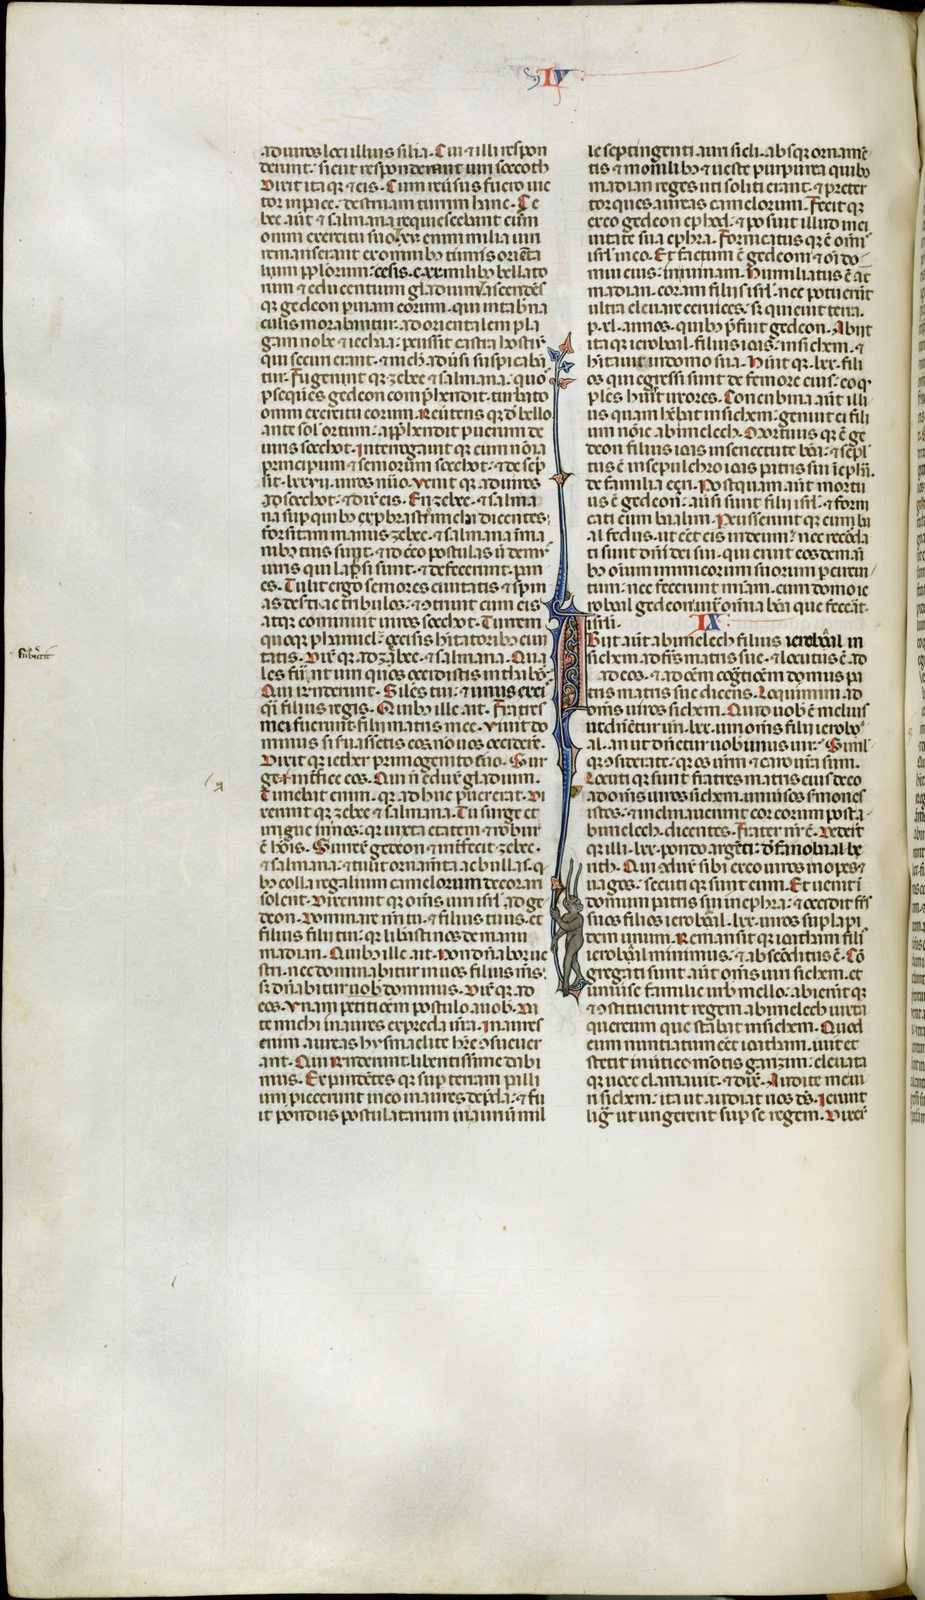 IV
ad uiros loci illius silia. Cui ⁊ illi respon
derunt: sicut responderant uiri soccoth
Dixit itaqꝫ ⁊ eis. Cum reūsus fuero uic
tor in pace: destruam turrim hanc. Ze
bee aūt ⁊ salmana requiescebant cum
omni exercitu suo. xv. enim milia uiri
remanserant ex omnibꝫ turmis oriēta
lium pplorum: cesis. c.xx. milibꝫ bellato
rum ⁊ educentium gladium. Ascendēs
qꝫ gedeon p uiam eorum. qui in tabīna
culis morabantur: ad orientalem pla
gam nobe ⁊ iecbaa: peussit castra hostiū
qui securi erant. ⁊ nich aduīsi suspicabāt
tur. Fugerunt qꝫ zebee ⁊ salmana. quos
psequēs gedeon comphendit. turbato
omni exercitu eorum. Reūtens qꝫ de bello
ante sol' ortum: appbendit puerum de
uiris soccoth. Interrogauit qꝫ eum nōīa
principum ⁊ seniorum soccoth: ⁊ descp
sit. lxxvii. uiros nūo. Venit qꝫ ad uiros
ad soccoth: ⁊ dix̄ eis. En zebee. ⁊ salma
na sup quibꝫ exprobrastis michi dicentes:
forsitam manus zebee. ⁊ salmana ī ma
nibꝫ tuis sunt. ⁊ id cco postulas ut demꝰ
uiris qui lapsi sunt. ⁊ defecerunt. pan
es. Tulit ergo seniores ciuitatis ⁊ spin
as deserti ac tribulos: ⁊ ɔtriuit cum eis
atqꝫ cominuit uiros soccoth. Turrem
quoqꝫ phanuel: occisis hītatoribꝫ ciui
tatis. Dix̄ qꝫ ad zebee. ⁊ salmana. Qua
les fuer̄t uiri quos occidistis in thabor.
Qui r̄nderunt. Siles tui: ⁊ unus ex ei
qi filius regis. Quibꝫ ille ait. Fratres
mei fuerunt filii matris mee. Viuit do
minus si suassetis eos nō uos occidere.
Dixit qꝫ iether primogenito suo. Sur
ge ⁊ int̄fice eos. Qui n̄ eduxit gladium.
Timebat enim. qꝫ adhuc puer erat. Di
xerunt qꝫ zebee ⁊ salmana. Tu surge et
irrue in nos: qꝫ iuxta etatem ⁊ robur
ē hoīs. Surrex̄ gedeon ⁊ int̄fecit zebee.
⁊ salmana: ⁊ tulit ornam̄ta ac bullas. q̄
bꝫ colla regalium camelorum decorari
solent. Dixerunt qꝫ om̄s uiri isrl ad ge
deon. Dominare nr̄i tu. ⁊ filius tuus. et
filius filii tui: qꝫ libāsti nos de manu
madian. Quibꝫ ille ait. Non dn̄abor ue
stri. nec dominabitur in uos filius m̄s:
sꝫ dn̄abitur uob' dominus. Dix̄ qꝫ ad
eos. Vnam petiticēm postulo a uob'. Da
te michi inaures ex preda ur̄a. Inaures
enim aureas hysmaelite hr̄e ɔsueuer
ant. Qui r̄nderunt. libentissime dabi
mus. Expandētes qꝫ sup terram palli
um piecerunt in eo inaures de pda: ⁊ fu
it pondus postulatarum inaurium mil
le septingenti auri sicli. absqꝫ ornamē
tis ⁊ monilibꝫ ⁊ ueste purpurea quibꝫ
madian reges uti soliti erant. ⁊ preter
torques aureas camelorum. Fecit qꝫ
ex eo gedeon ephod: ⁊ posuit illud in ci
uitate sua ephra. Fornicatus qꝫ ē om̄is
isrl in eo. Et factum ē gedeoni ⁊ oī do
mui eius: in ruinam. Humiliatus ē aū
madian. coram filiis isrl: nec potuerūt
ultra eleuare ceruices. sꝫ quieuit terra.
p. xl. annos. quibꝫ p̄fuit gedeon. Abiit
itaqꝫ ieroboal. filius ioas: in sichem. ⁊
hītauit in domo sua. Hūit qꝫ. lxx. fili
os qui egressi sunt de femore eius: eo qꝫ
plēs hūit uxores. Concubina aūt illi
us quam hēbat in sichem: genuit ei fili
um nōīe abimelech. Mortuus qꝫ ē ge
deon filius ioas in senectute bōa: ⁊ sepl
tus ē in sepulchro ioas patris sui in ephra
de familia ezri. Postquam aūt mortu
us ē gedeon: auersi sunt filii isrl. ⁊ forni
cati cum baalim. Peussserunt qꝫ cum ba
al fedus. ut eēt eis in deum: nec recorda
ti sunt dn̄i dei sui. qui eruit eos de mani
bꝫ om̄ium inimicorum suorum p circui
tum: nec fecerunt miām. cum domo ie
roboal gedeon: iuxta om̄ia bōa que fecerat
isrli. IX
Abiit aūt abimelech filius ieroboal in
sichem ad frēs matris sue. ⁊ locutus ē ad
ad eos. ⁊ ad oēm cogtiōem domus pa
tris matris sue dicens. Loquimini ad
om̄s uiros sichem. Quid uob' ē melius
ut dn̄entur uri. lxx. uiri om̄s filii ierobo
al. an ut dn̄etur uob' unus uir: Simul
qꝫ ɔsiderate. qꝫ os ur̄m ⁊ caro ur̄a sum.
Locuti qꝫ sunt fratres matris eius de eo
ad om̄s uiros sichem. uniuersos s'mones
istos: ⁊ inclinauerunt cor eorum post a
bimelech. dicentes. Frater nr̄ ē. Dederūt
qꝫ illi. lxx. pondo argēti: de fano baal be
rith. Qui ɔduxit sibi ex eo uiros inopes ⁊
uagos: secuti qꝫ sunt eum. Et uenit ī
domum patris sui in ephra: ⁊ occidit frēs
suos filios ieroboal. lxx. uiros sup lapi
dem unum. Remansit qꝫ ioatham fili
ieroboal minimus: ⁊ abscōditus ē. Cō
gregati sunt aūt om̄s uiri sichem. et
uniuse familie urb' mello: abierūt qꝫ
⁊ ɔstituerunt regem abimelech iuxta
quercum que stabat in sichem. Quod
cum nuntiatum eēt ioatham. iuit et
stetit in uitice mōtis garizim: eleuata
qꝫ uoce clamauit. ⁊ dix̄. Audite me ui
ri sichem: ita ut audiat uos ds̄. Ierunt
liḡ ut ungerent sup se regem. Dixer̄